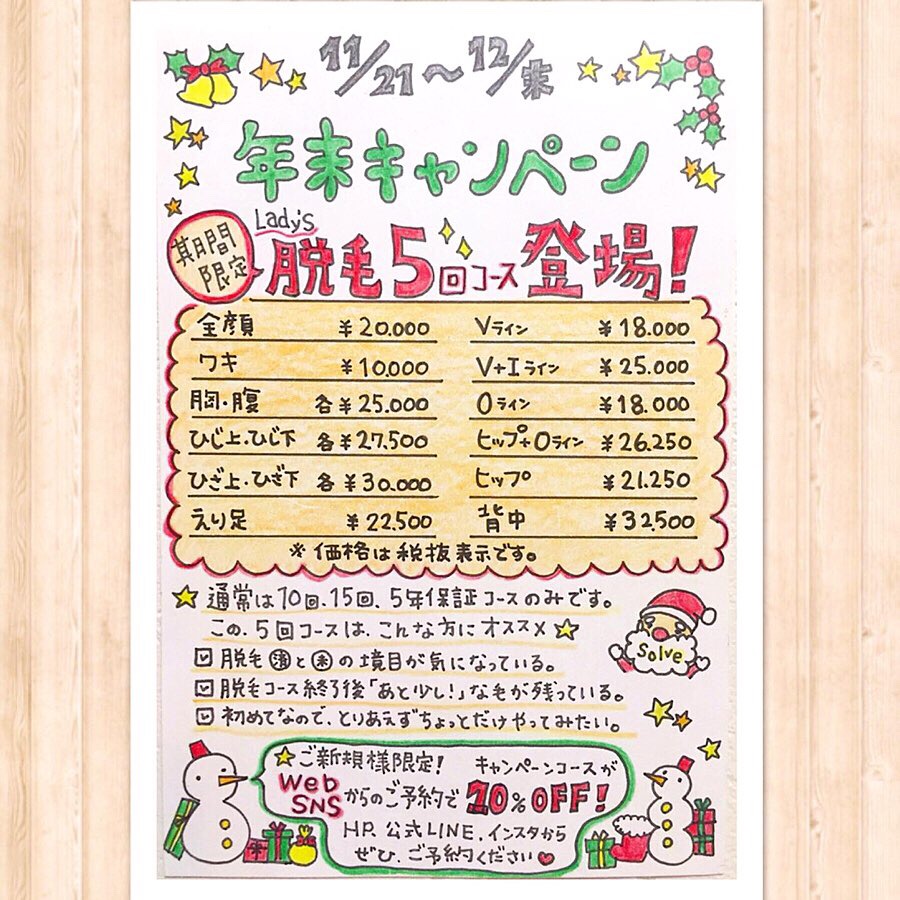 11/21〜12/末
年末キャンペーン
期間限定
Lady's
脱毛5回コース登場!
全顔 ¥20.000
ワキ ¥10.000
胸・腹 各¥25.000
ひじ上・ひじ下 各¥27.500
ひざ上・ひざ下 各¥30.000
えり足 ¥22.500
Vライン ¥18.000
V+Iライン ¥25.000
Oライン ¥18.000
ヒップ+Oライン ¥26.250
ヒップ ¥21.250
背中 ¥32.500
※価格は税抜表示です。
★通常は10回、15回、5年保証コースのみです。
この、5回コースは、こんな方にオススメ★
☑脱毛済と未の境目が気になっている。
☑脱毛コース終了後「あと少し!」な毛が残っている。
☑初めてなので、とりあえずちょっとだけやってみたい。
Solve
★ご新規様限定! キャンペーンコースが
Web SNSからのご予約で 10%OFF!
HP、公式LINE、インスタから
ぜひ、ご予約ください♥